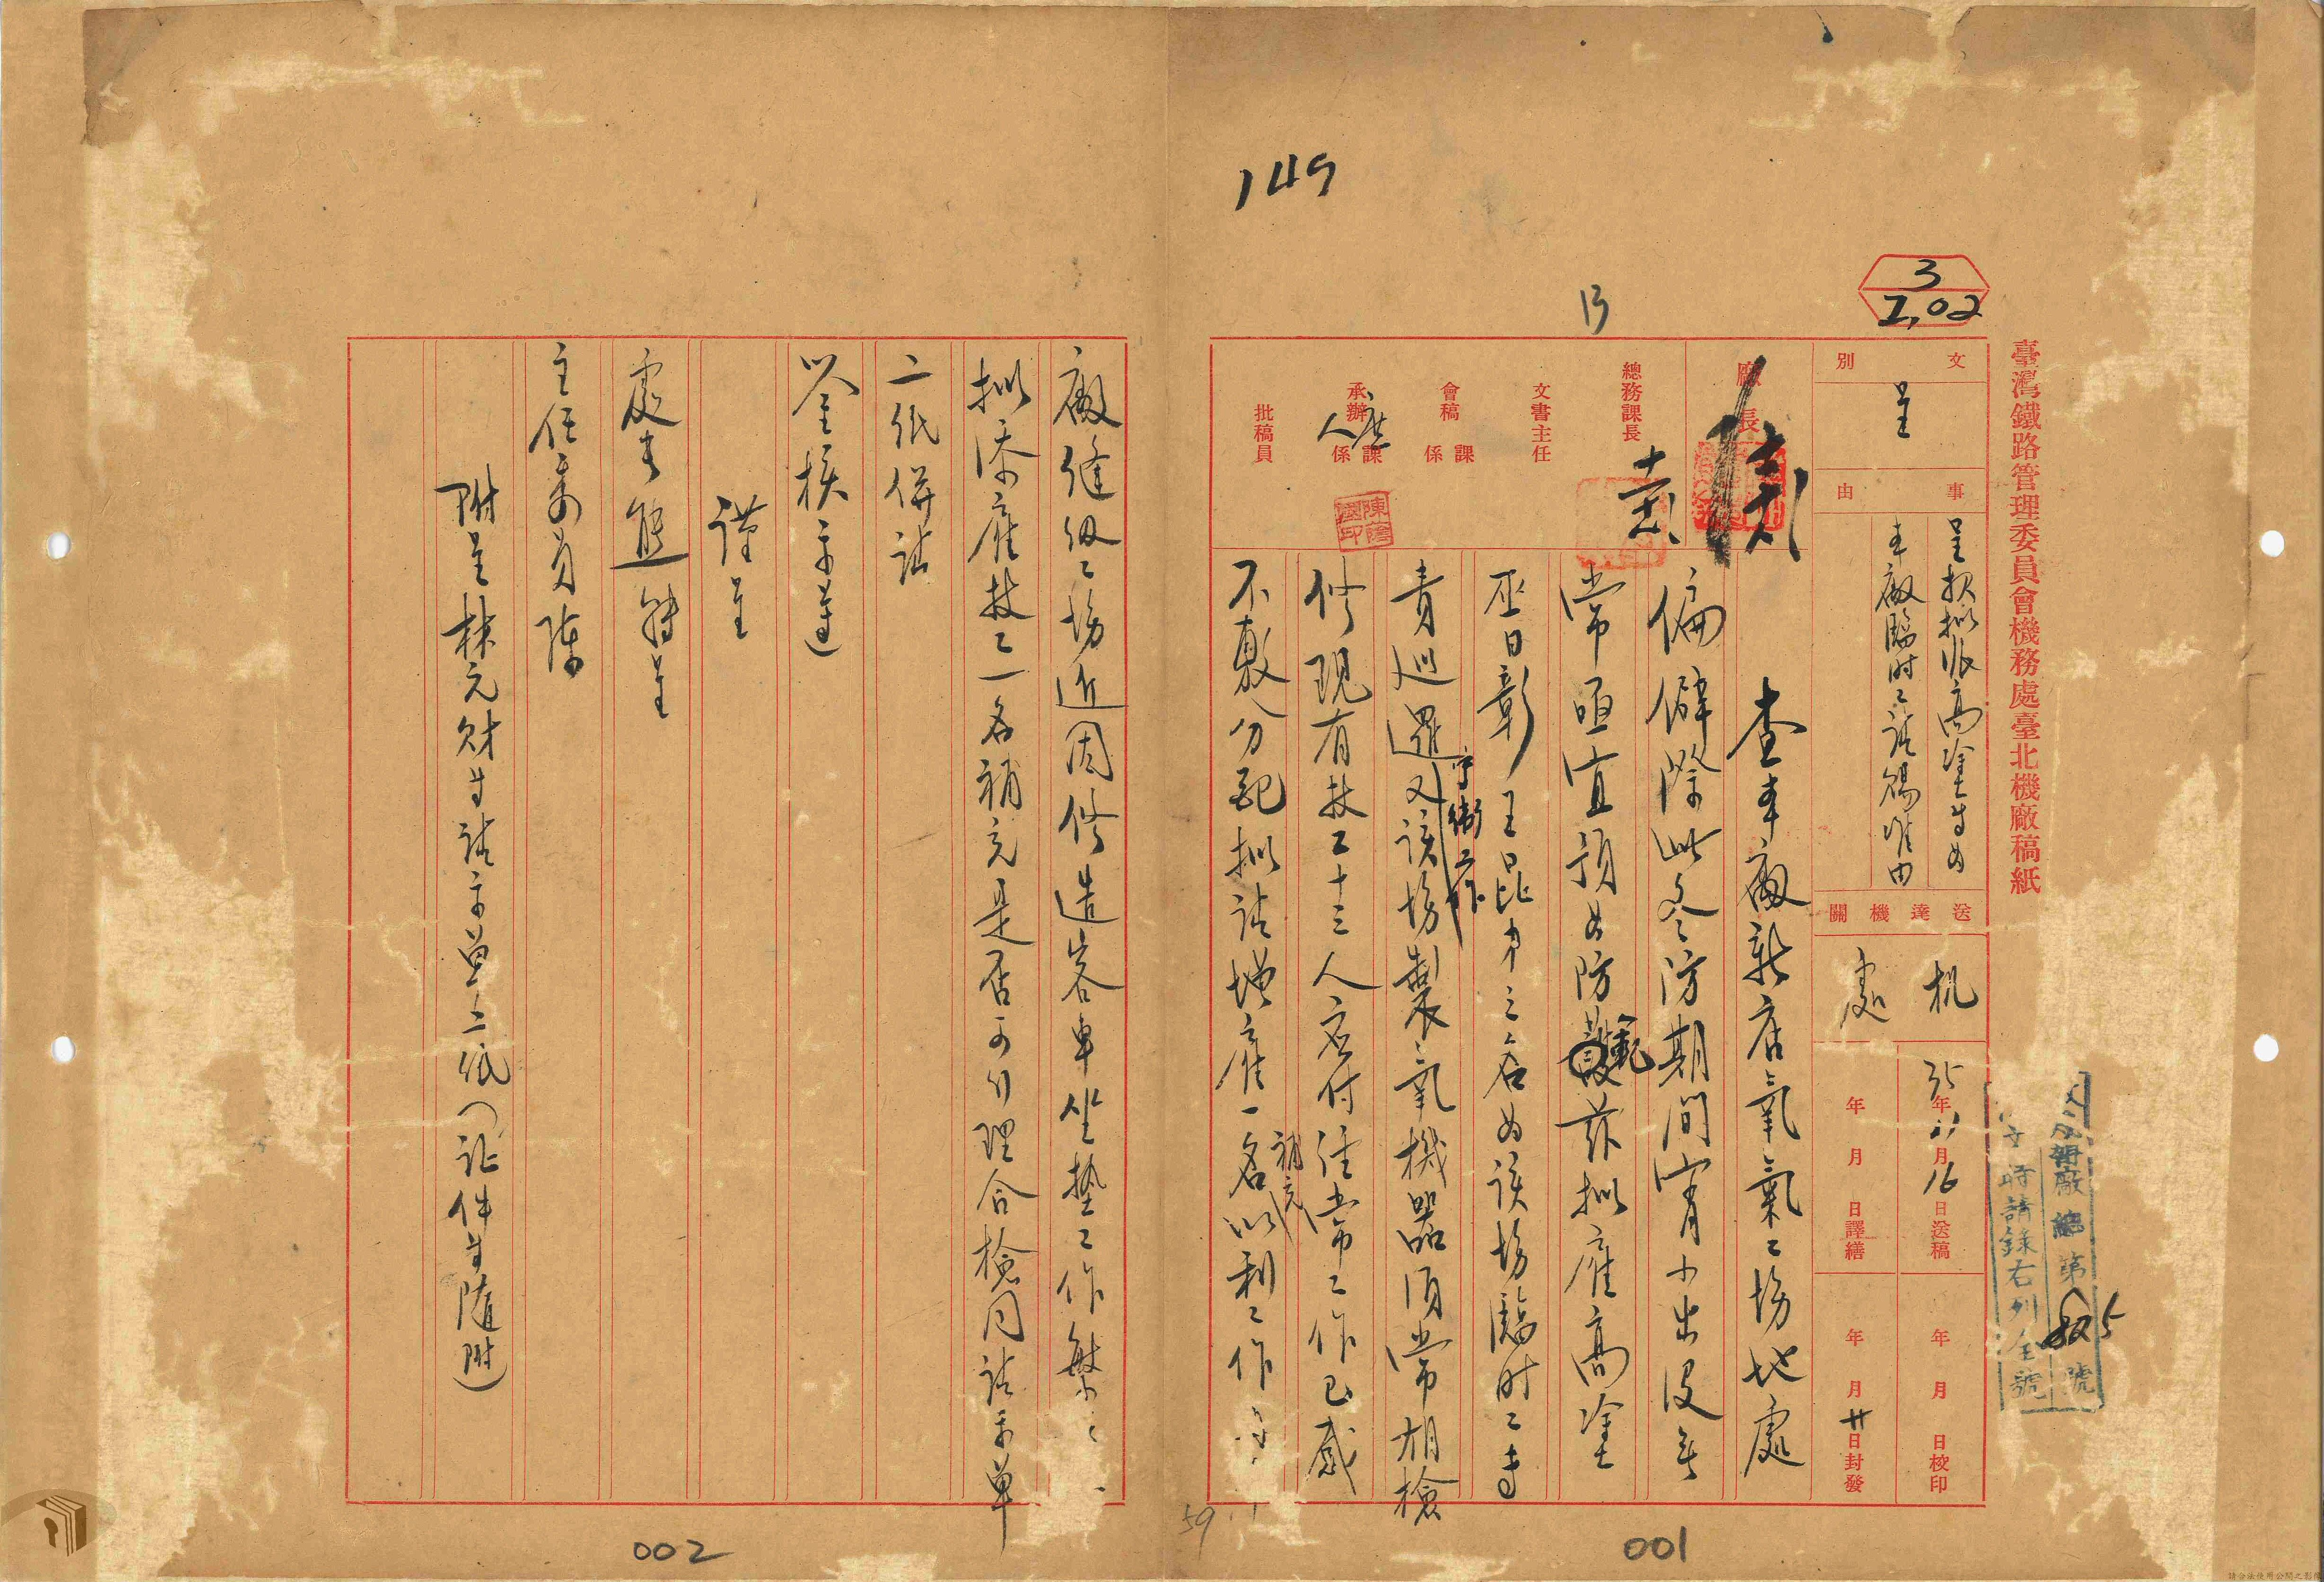 臺灣鐵路管理委員會機務處臺北機廠稿紙
3
2,02
149
13
文別
呈
事由
呈報擬派高塗等為
本廠臨時工請備准由
送達機關
机處
35年11月16日送稿
年月日校印
年月日譯繕
年月廿日封發
廠長
總務課長
文書主任
會稿 課係
承辦 課係
批稿員
機廠總第 號
時請錄右列全號
查本廠新店氧氣工場地處
偏僻際此冬防期間宵小出沒無
常亟宜預為防範茲擬雇高塗
巫日彰王昆中三名為該場臨時工專
責巡邏守衛工作又該場製氧機器須常用檢
修現有技工十三人應付經常工作已感
不敷分配擬請增雇一名補充以利工作
廠縫紉工場近因修造客車坐墊工作繁
擬添雇技工一名補充是否可行理合檢同請示單
二紙併請
鑒核示遵
謹呈
處長熊 轉呈
主任委員陳
附呈林元財等請示單二紙(証件等隨附)
59
001
002